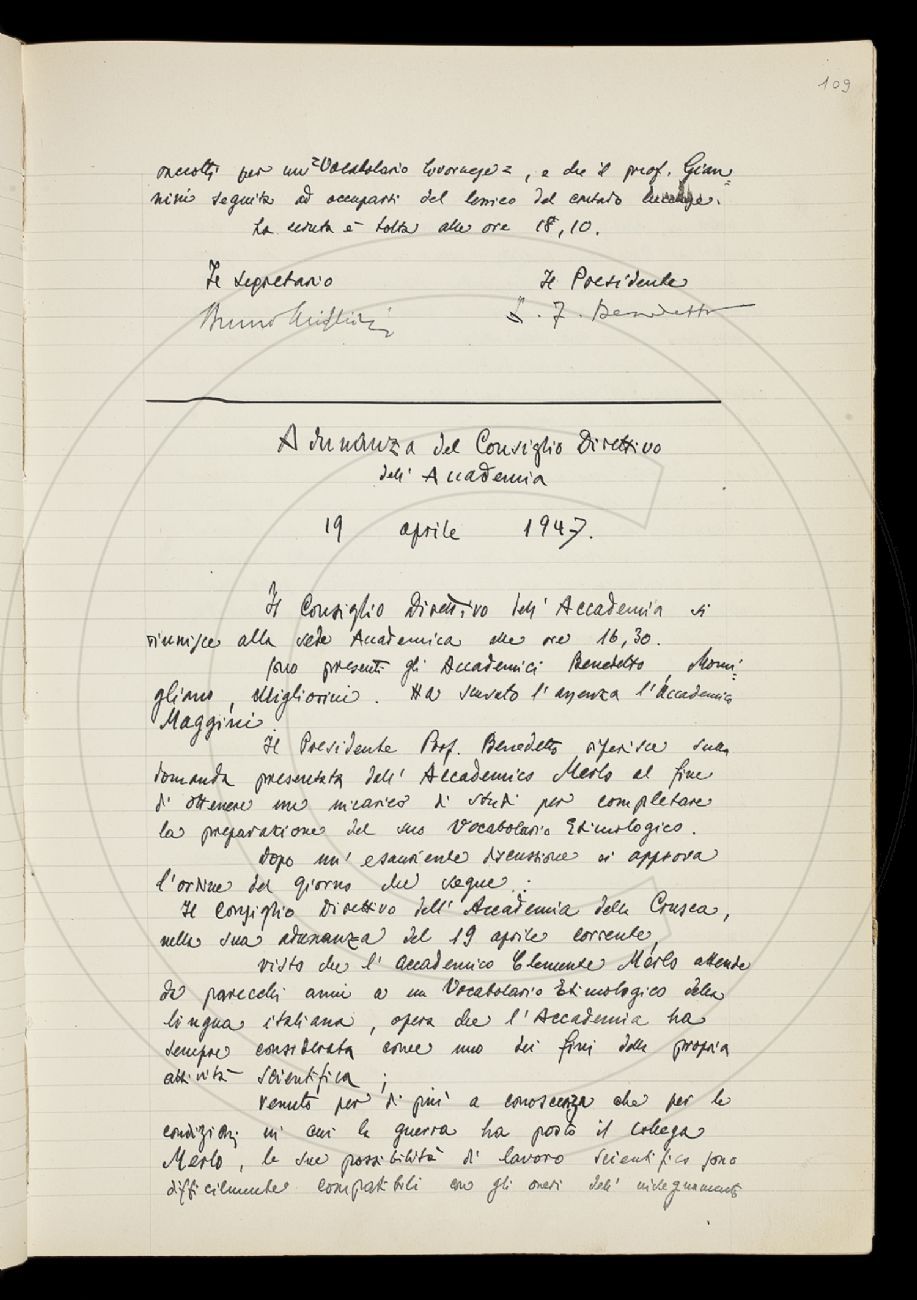 109
raccolti per un "Vocabolario livornese", e che il prof. Gian=
nini seguita ad occuparsi del lessico del contado lucchese.
La seduta è tolta alle ore 18,10.
Il Segretario Il Presidente
Bruno Migliorini L. F. Benedetto
Adunanza del Consiglio Direttivo
dell'Accademia
19 aprile 1947.
Il Consiglio Direttivo dell'Accademia si
riunisce alla sede Accademica alle ore 16,30.
Sono presenti gli Accademici Benedetto, Momi=
gliano, Migliorini. Ha scusato l'assenza l'Accademico
Maggini.
Il Presidente Prof. Benedetto riferisce sulla
domanda presentata dall'Accademico Merlo al fine
di ottenere un incarico di studi per completare
la preparazione del suo Vocabolario Etimologico.
Dopo un'esauriente discussione si approva
l'ordine del giorno che segue:
Il Consiglio Direttivo dell'Accademia della Crusca,
nella sua adunanza del 19 aprile corrente,
visto che l'accademico Clemente Merlo attende
da parecchi anni a un Vocabolario Etimologico della
lingua italiana, opera che l'Accademia ha
sempre considerata come uno dei fini della propria
attività scientifica;
venuto per di più a conoscenza che per le
condizioni in cui la guerra ha posto il collega
Merlo, le sue possibilità di lavoro scientifico sono
difficilmente compatibili con gli oneri dell'insegnamento